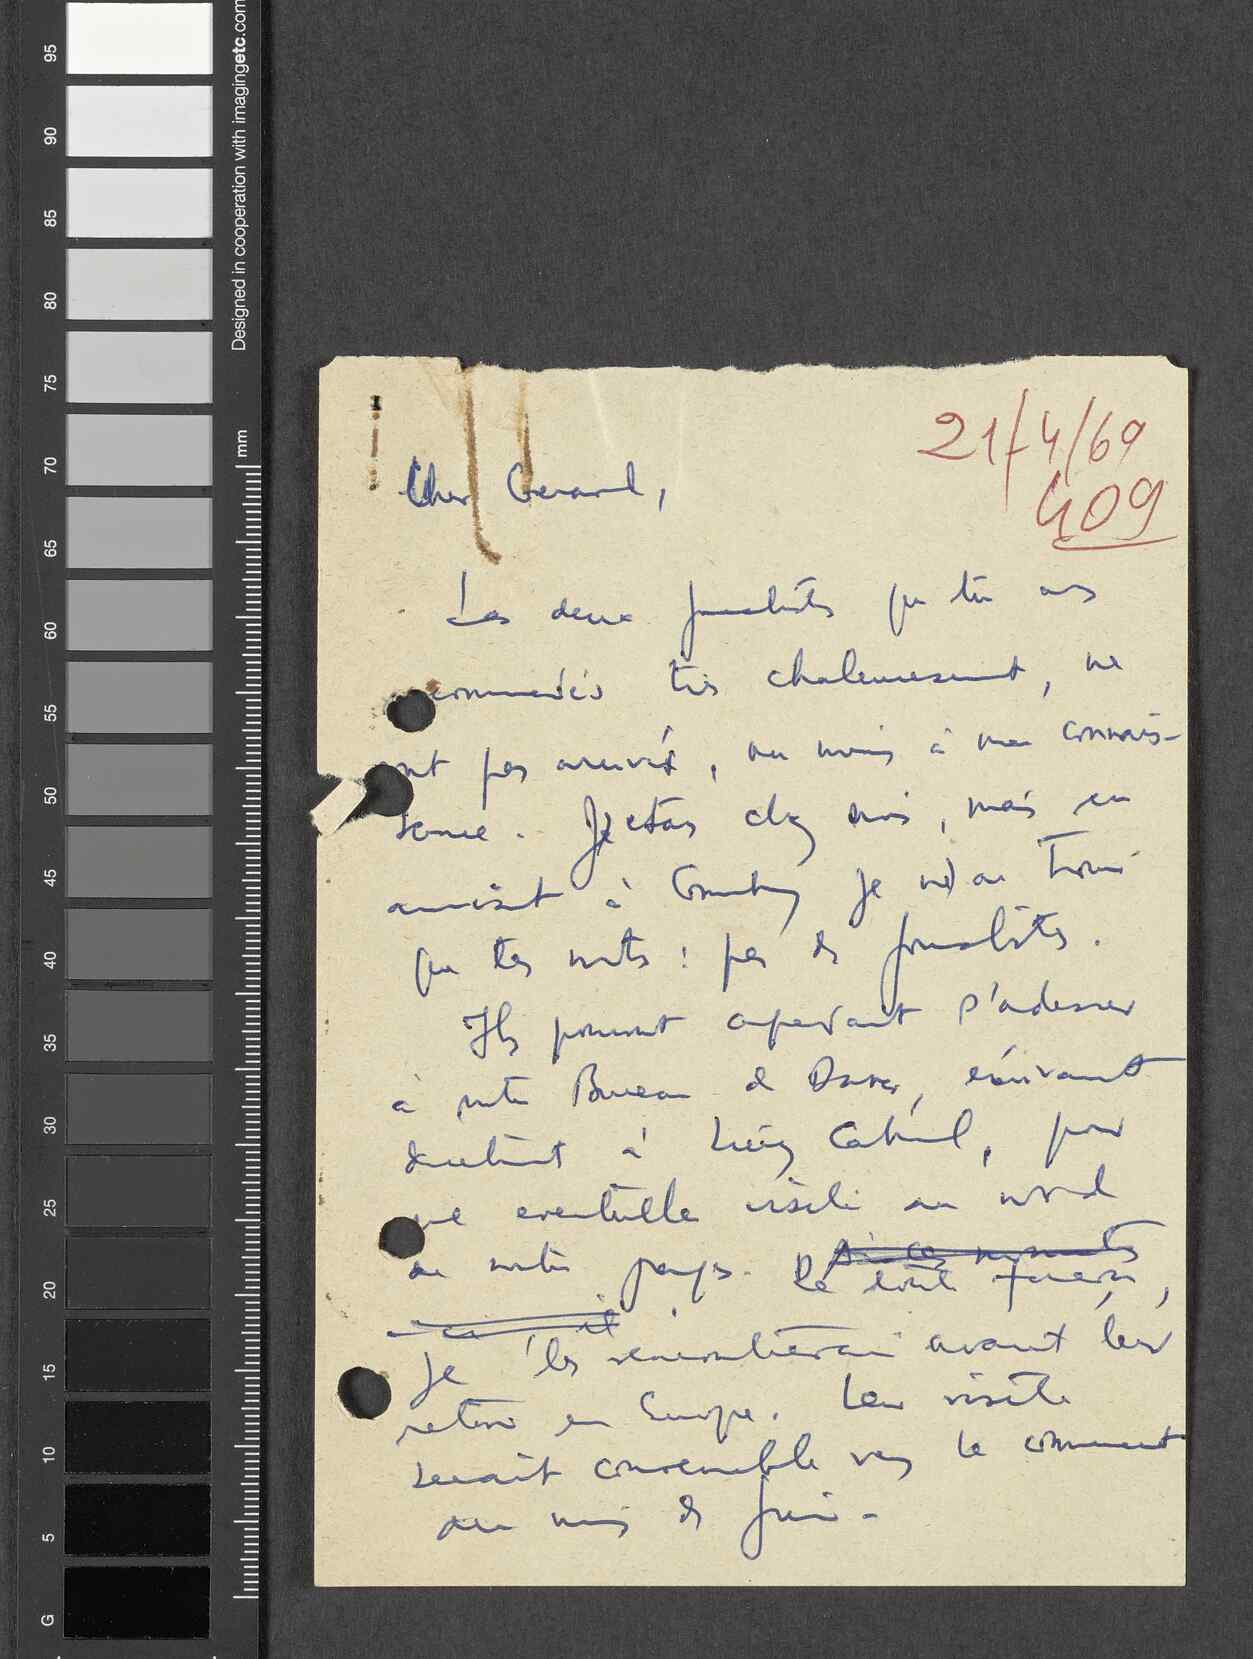 95
90
85
80
75
70
65
60
55
50
45
40
35
30
25
20
15
10
5
G
Designed in cooperation with imagingetc.com
mm
21/4/69
409
Cher Gerard,
Les deux journalistes que tu as
recommendés très chaleureusement, ne
sont pas arrivés, au moins à ma connais-
sance. J'etais chez nous, mais en
arrivant à Conakry je n'ai trouvé
que tes mots : pas de journalistes.
Ils pourront cependant s'adresser
à notre Bureau de Dakar, écrivant
directement à Luiz Cabral, pour
une eventuelle visite au nord
de notre pays. De toute façon,
je les rencontrerai avant leur
retour en Europe. Leur visite
serait convenable vers le comment
au mois de Juin.